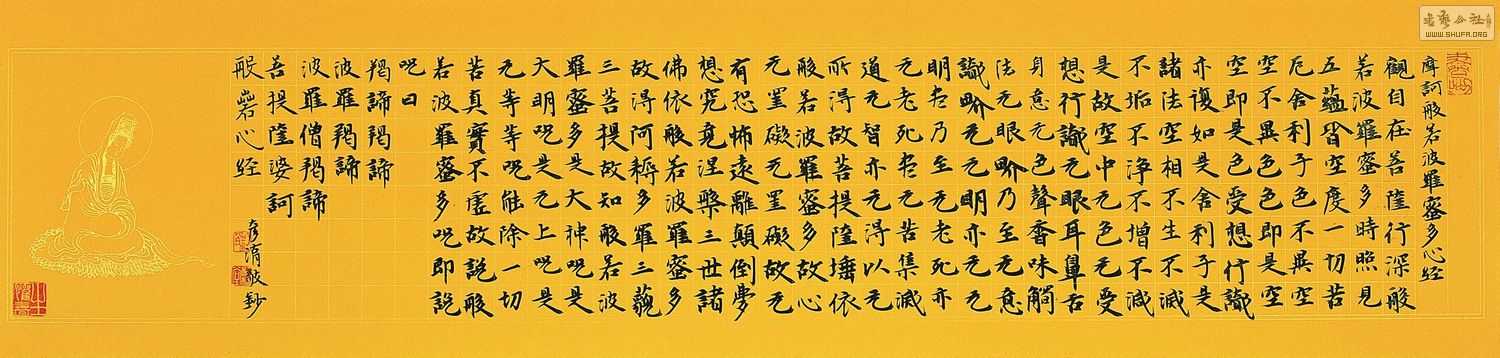 摩訶般若波羅蜜多心経
觀自在菩薩行深般
若波羅蜜多時照見
五蘊皆空度一切苦
厄舍利子色不異空
空不異色色即是空
空即是色受想行識
亦復如是舍利子是
諸法空相不生不滅
不垢不淨不增不減
是故空中无色无受
想行識无眼耳鼻舌
身意无色聲香味觸
法无眼界乃至无意
識界无无明亦无无
明尽乃至无老死亦
无老死尽无苦集滅
道无智亦无得以无
所得故菩提薩埵依
般若波羅蜜多故心
无罣礙无罣礙故无
有恐怖遠離顛倒夢
想究竟涅槃三世諸
佛依般若波羅蜜多
故得阿耨多羅三藐
三菩提故知般若波
羅蜜多是大神呪是
大明呪是无上呪是
无等等呪能除一切
苦真實不虛故說般
若波羅蜜多呪即說
呪曰
羯諦羯諦
波羅羯諦
波羅僧羯諦
菩提薩婆訶
般若心経
敬鈔
書藝公社
WWW.SHUFA.ORG